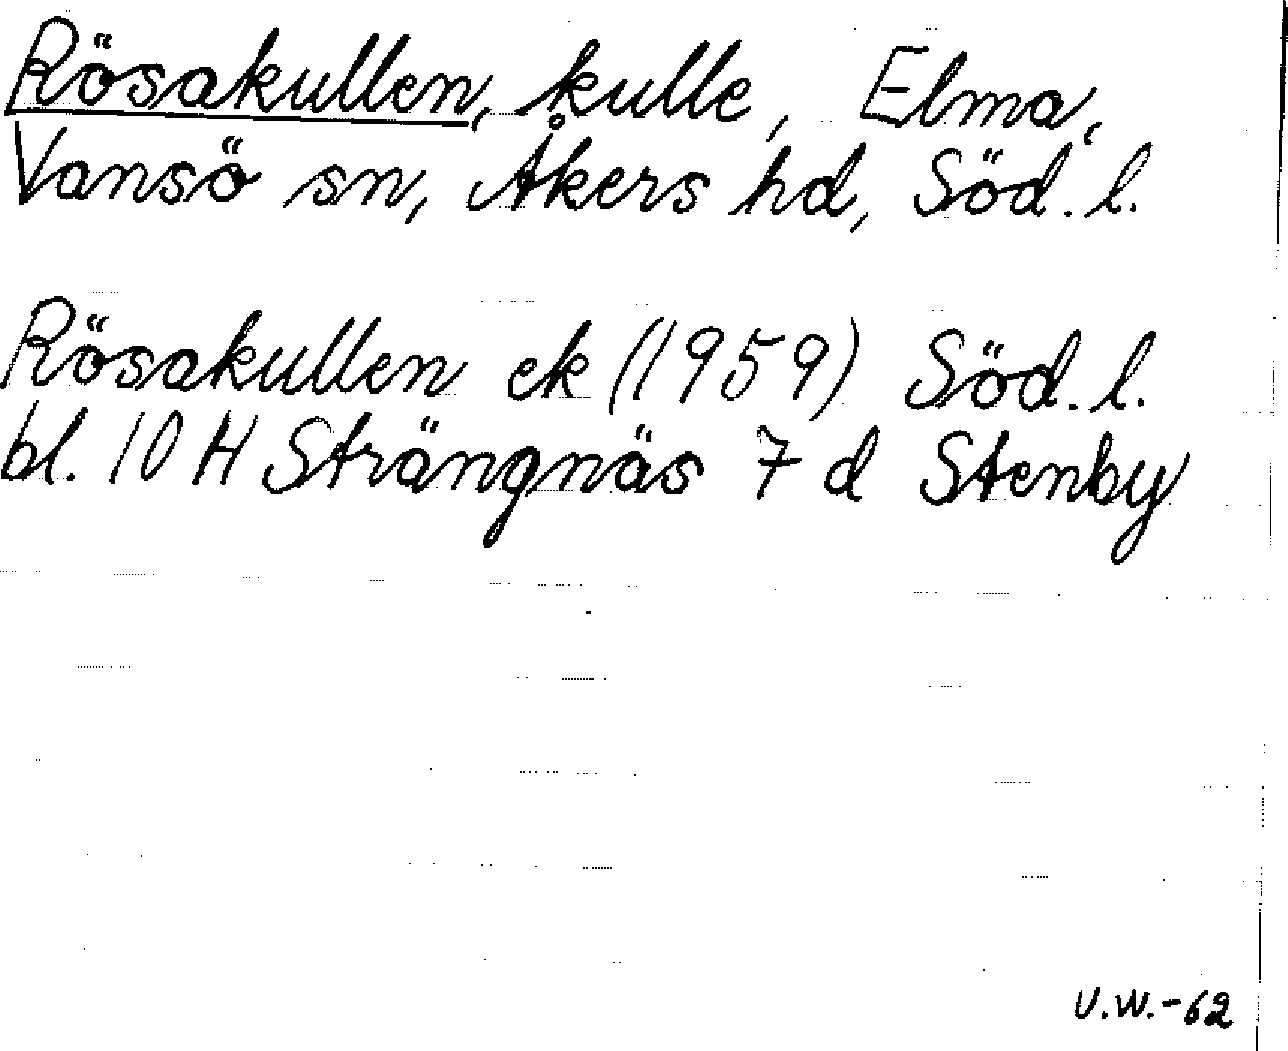 Rösakullen, kulle, Elma,
Vansö sn, Åkers hd, Söd. l.
Rösakullen ek (1959) Söd. l.
bl. 10 H Strängnäs 7 d Stenby
U.W.-62